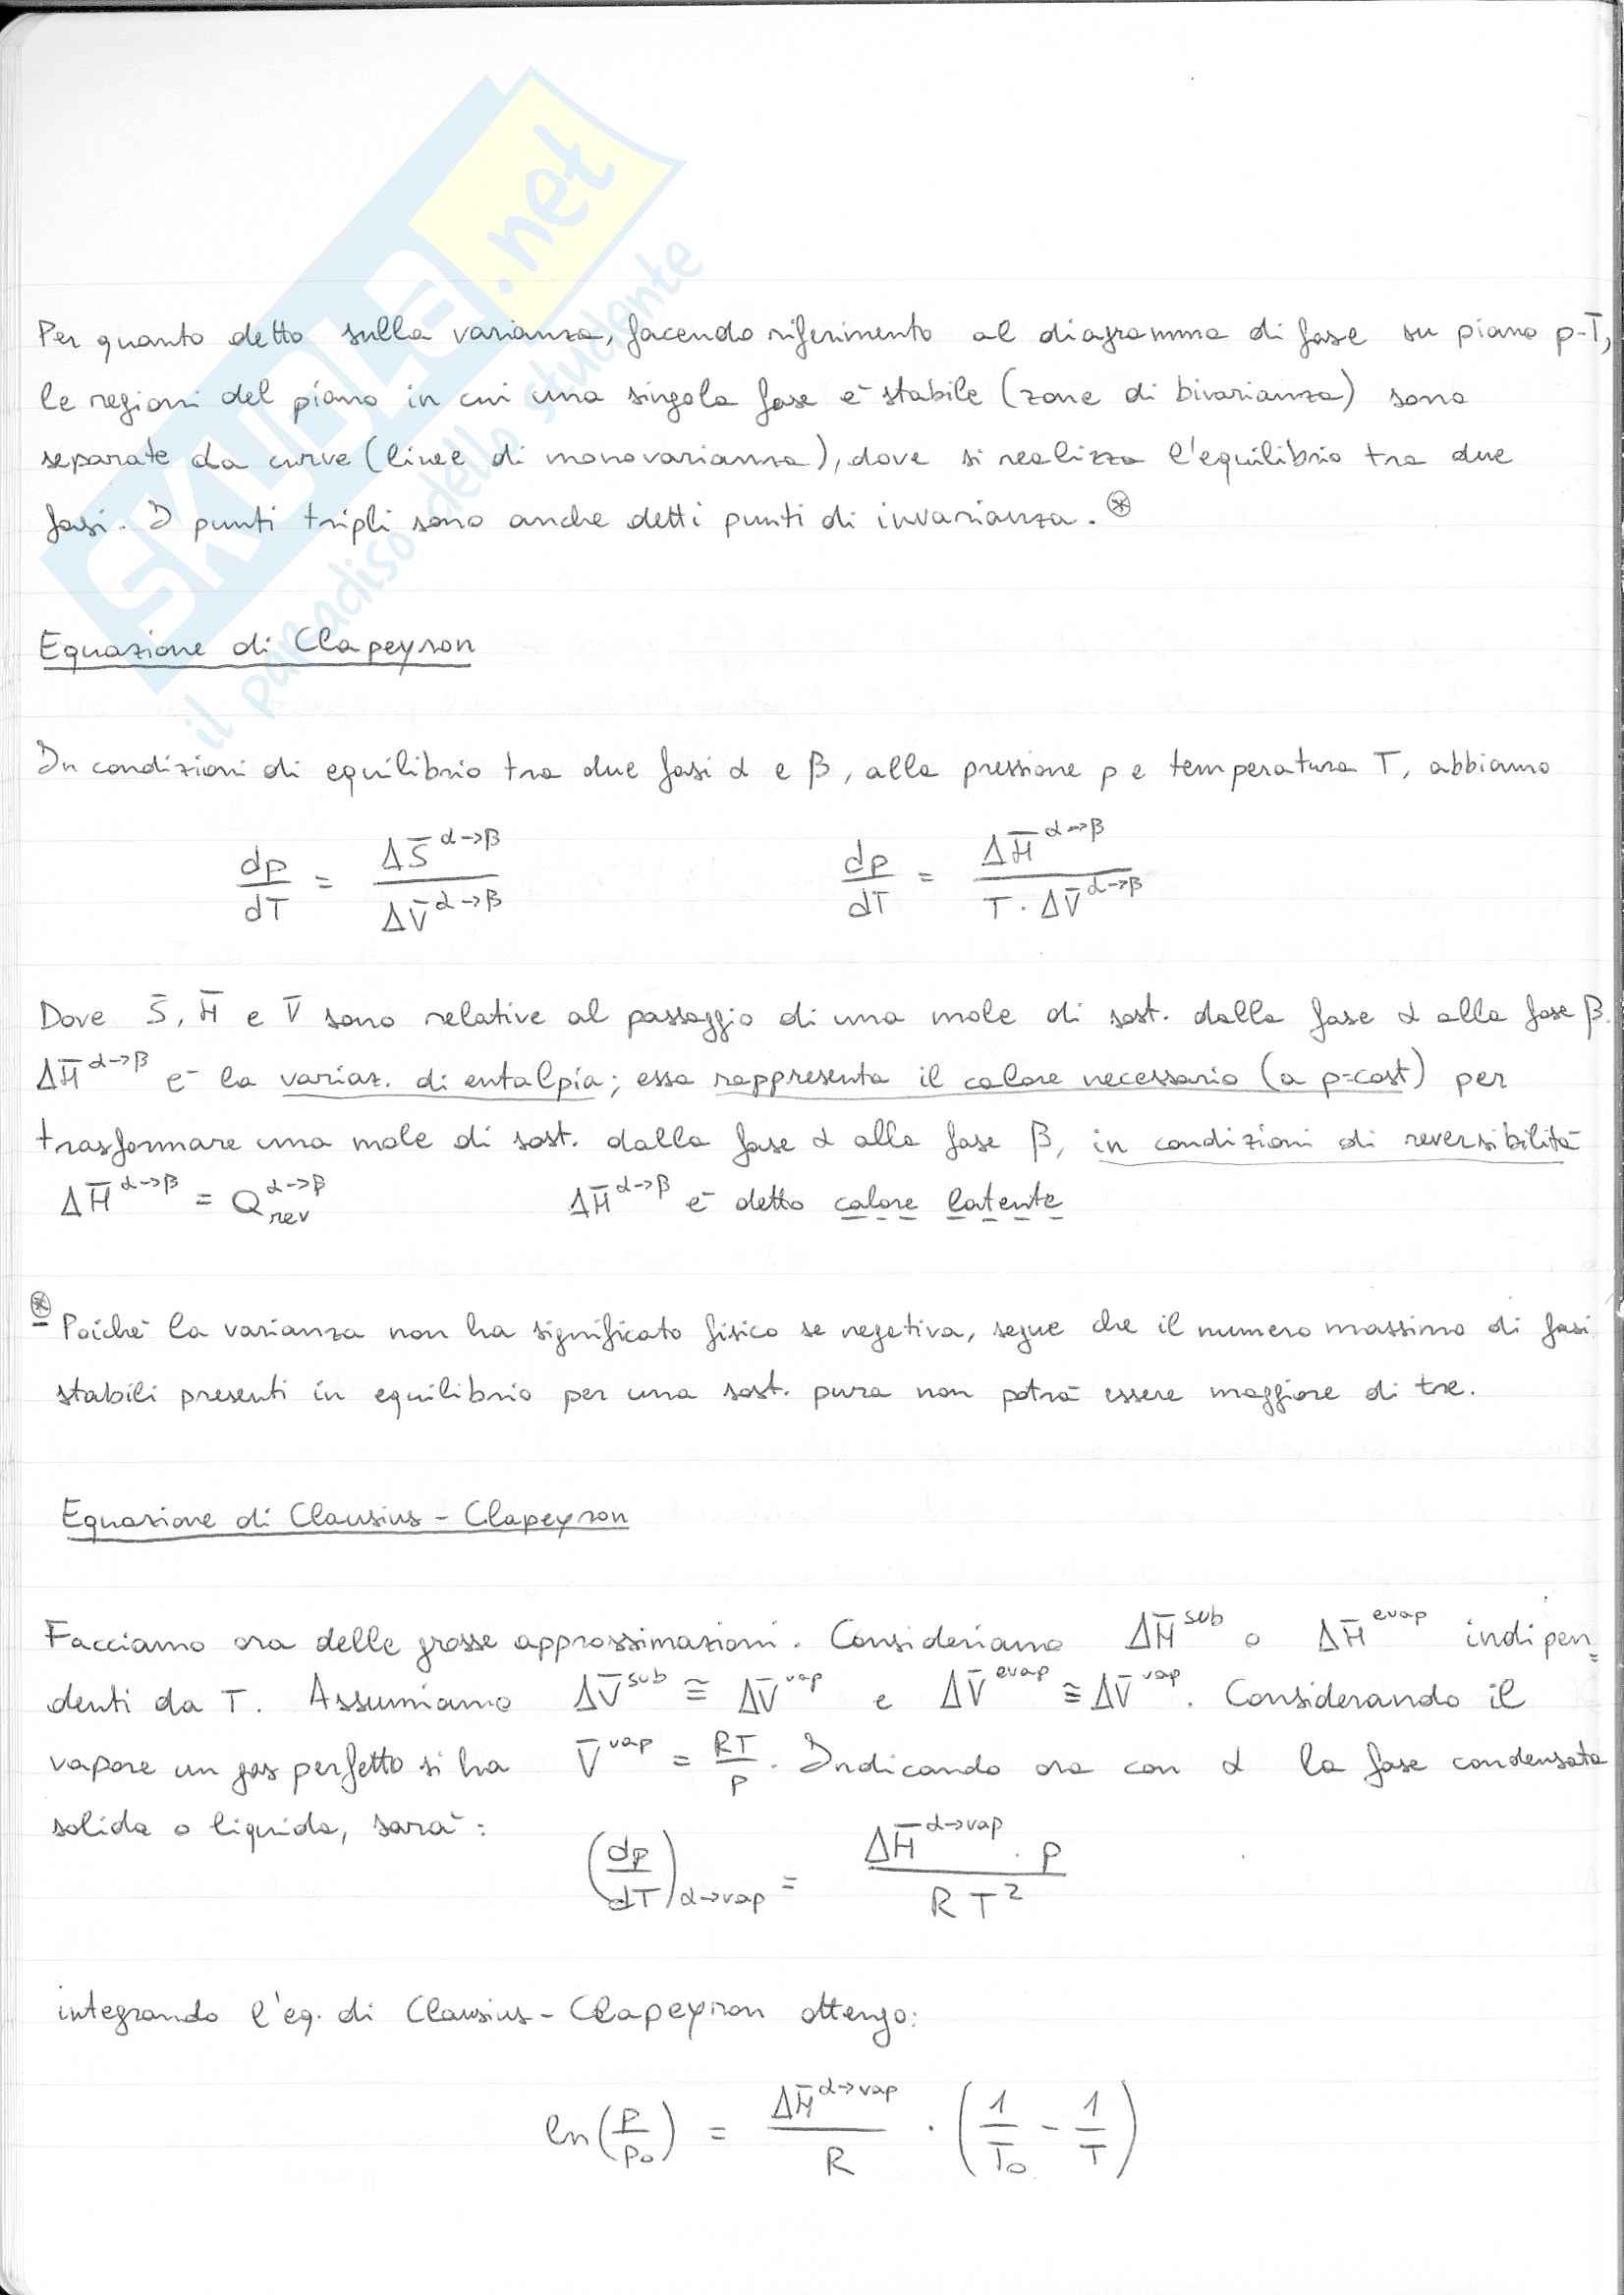 SKUOLA.net
il paradiso dello studente
Per quanto detto sulla varianza, facendo riferimento al diagramma di fase su piano p-T,
le regioni del piano in cui una singola fase è stabile (zone di bivarianza) sono
separate da curve (linee di monovarianza), dove si realizza l'equilibrio tra due
fasi. I punti tripli sono anche detti punti di invarianza. ⊛
Equazione di Clapeyron
In condizioni di equilibrio tra due fasi α e β, alla pressione p e temperatura T, abbiamo
dp/dT = ΔS̄^α→β / ΔV̄^α→β    dp/dT = ΔH̄^α→β / T · ΔV̄^α→β
Dove S̄, H̄ e V̄ sono relative al passaggio di una mole di sost. dalla fase α alla fase β.
ΔH̄^α→β è la variaz. di entalpia; essa rappresenta il calore necessario (a p=cost) per
trasformare una mole di sost. dalla fase α alla fase β, in condizioni di reversibilità
ΔH̄^α→β = Q_rev^α→β    ΔH̄^α→β è detto calore latente
⊛ Poiché la varianza non ha significato fisico se negativa, segue che il numero massimo di fasi
stabili presenti in equilibrio per una sost. pura non potrà essere maggiore di tre.
Equazione di Clausius - Clapeyron
Facciamo ora delle grosse approssimazioni. Consideriamo ΔH̄^sub o ΔH̄^evap indipen=
denti da T. Assumiamo ΔV̄^sub ≅ ΔV̄^vap e ΔV̄^evap ≅ ΔV̄^vap. Considerando il
vapore un gas perfetto si ha V̄^vap = RT/p. Indicando ora con α la fase condensata
solida o liquida, sarà:
(dp/dT)_α→vap = ΔH̄^α→vap · p / RT²
integrando l'eq. di Clausius-Clapeyron ottengo:
ln(p/p₀) = ΔH̄^α→vap / R · (1/T₀ - 1/T)